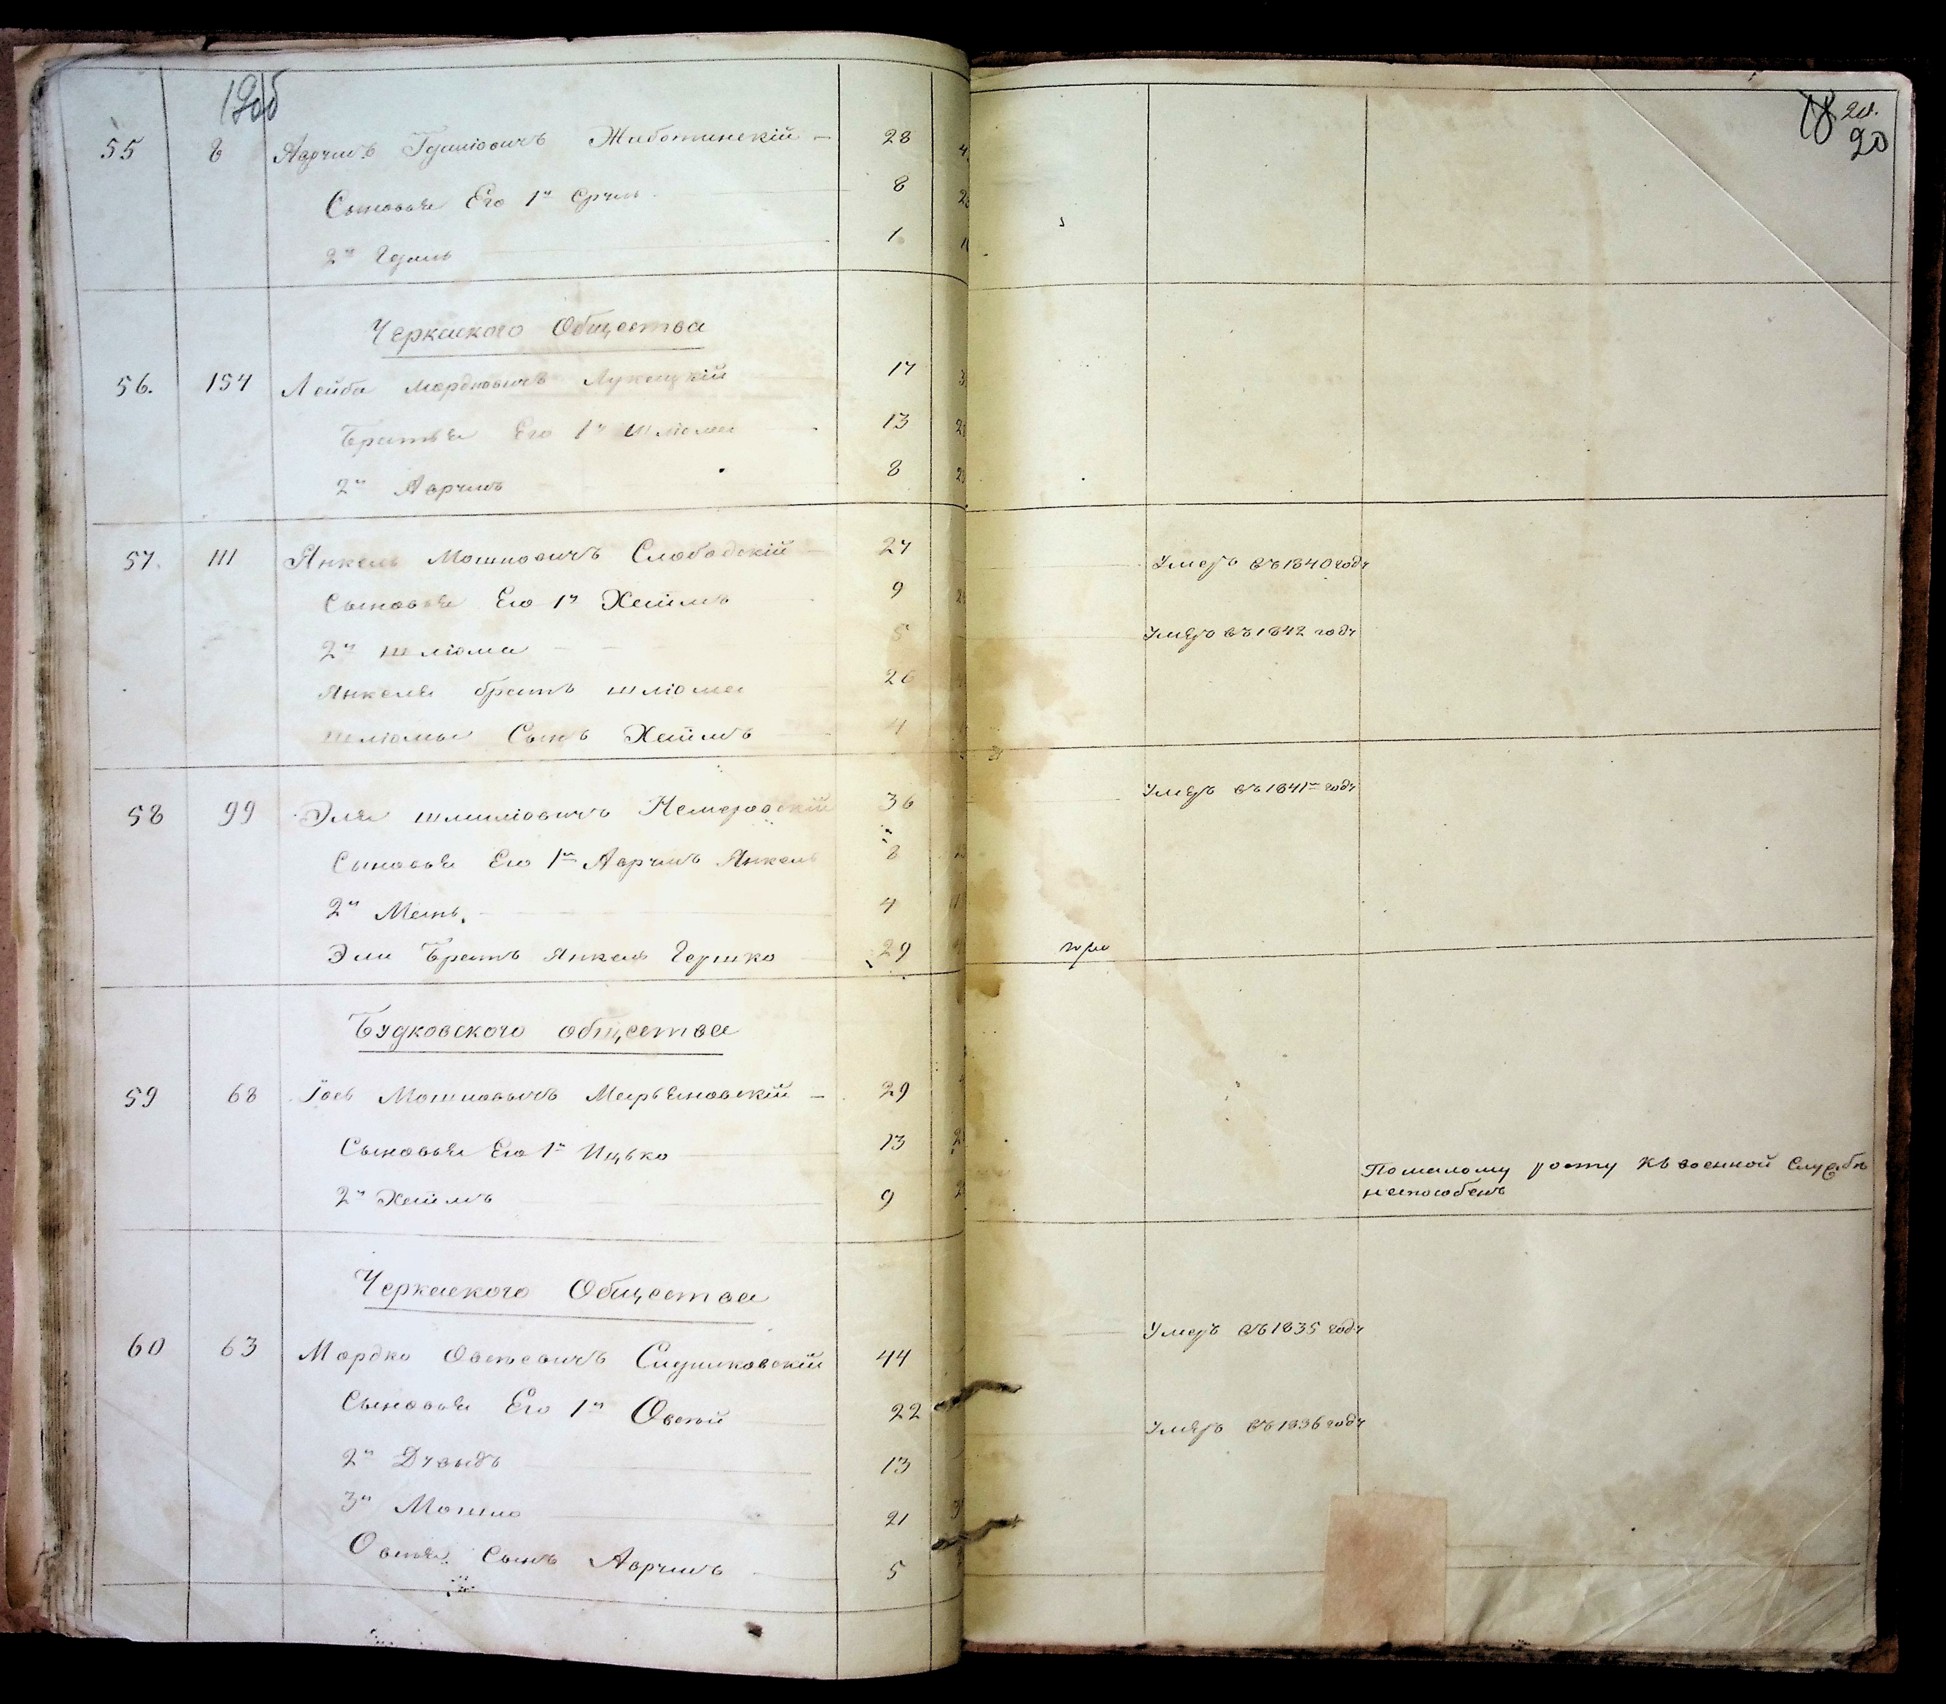 19об
55 8 Аврумъ Гдаліовичъ Жаботинскій 28
Сыновья Его 1й Сруль 8
2й Гдаль 1
Черкаского Общества
56. 154 Лейба Мордковичъ 17
Братья Его 1й Шліома 13
2й Аврумъ 8
57. 111 Янкель Мошковичъ Слободскій 27
Сыновья Его 1й Хаймъ 9
2й Шліома 5
Янкеля братъ Шліома 26
Шліомы Сынъ Хаймъ 4
58 99 Эля Шліміовичъ Немеровскій 36
Сыновья Его 1й Аврумъ Янкель 8
2й 4
Эли Братъ Янкель Гершко 29
Будковского общества
59 68 Іось Мошковичъ Марьяновскій 29
Сыновья Его 1й Ицько 13
2й Хаймъ 9
Черкаского Общества
60 63 Мордко Овсѣевичъ 44
Сыновья Его 1й Овсѣй 22
2й Дувыдъ 13
3й Мошко 21
Овсѣя Сынъ Аврумъ 5
18 20.
20
Умеръ въ 1840 году
Умеръ въ 1842 году
Умеръ въ 1841м году
По малому росту къ военной Службѣ
неспособенъ
Умеръ въ 1835 году
Умеръ въ 1836 году